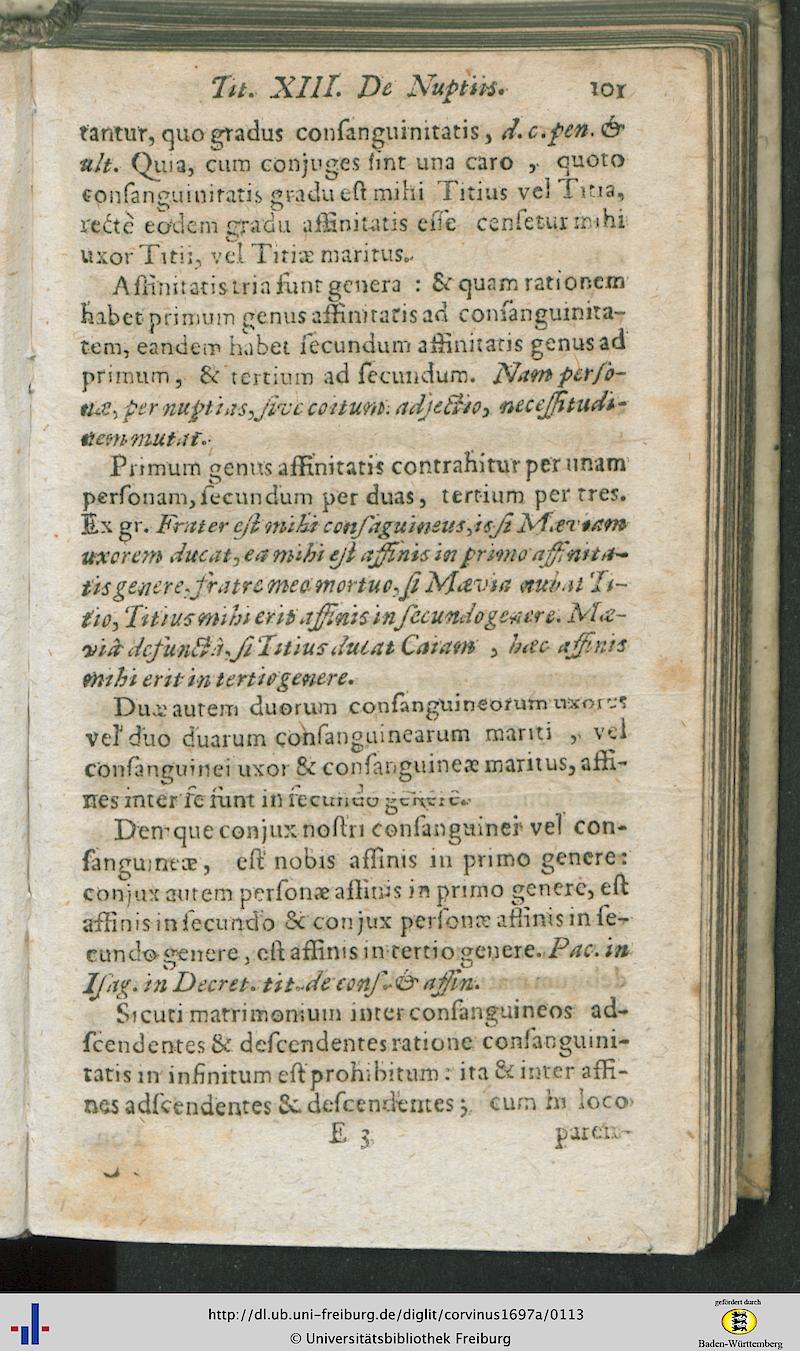 Tit. XIII. De Nuptiis. 101
tantur, quo gradus conſanguinitatis, d. c. pen. &
ult. Quia, cum conjuges ſint una caro, quoto
conſanguinitatis gradu eſt mihi Titius vel Titia,
rectè eodem gradu affinitatis eſſe cenſetur mihi
uxor Titii, vel Titiæ maritus.
Affinitatis tria ſunt genera: & quam rationem
habet primum genus affinitatis ad conſanguinita-
tem, eandem habet ſecundum affinitatis genus ad
primum, & tertium ad ſecundum. Nam perſo-
næ, per nuptias, ſive coitum. adjectio, neceſſitudi-
nem mutat.
Primum genus affinitatis contrahitur per unam
perſonam, ſecundum per duas, tertium per tres.
Ex gr. Frater eſt mihi conſaguineus, is ſi Mæviam
uxorem ducat, ea mihi eſt affinis in primo affinita-
tis genere, fratre meo mortuo, ſi Mævia nubat Ti-
tio, Titius mihi erit affinis in ſecundo genere. Mæ-
viâ defunctâ, ſi Titius ducat Caiam, hæc affinis
mihi erit in tertio genere.
Duæ autem duorum conſanguineorum uxores
vel duo duarum conſanguinearum mariti, vel
conſanguinei uxor & conſanguineæ maritus, affi-
nes inter ſe ſunt in ſecundo genere.
Denique conjux noſtri conſanguinei vel con-
ſanguineæ, eſt nobis affinis in primo genere:
conjux autem perſonæ affinis in primo genere, eſt
affinis in ſecundo & conjux perſonæ affinis in ſe-
cundo genere, eſt affinis in tertio genere. Pac. in
Iſag. in Decret. tit. de conſ. & affin.
Sicuti matrimonium inter conſanguineos ad-
ſcendentes & deſcendentes ratione conſanguini-
tatis in infinitum eſt prohibitum: ita & inter affi-
nes adſcendentes & deſcendentes; cum in loco
E 3 paren-
http://dl.ub.uni-freiburg.de/diglit/corvinus1697a/0113
© Universitätsbibliothek Freiburg
gefördert durch
Baden-Württemberg